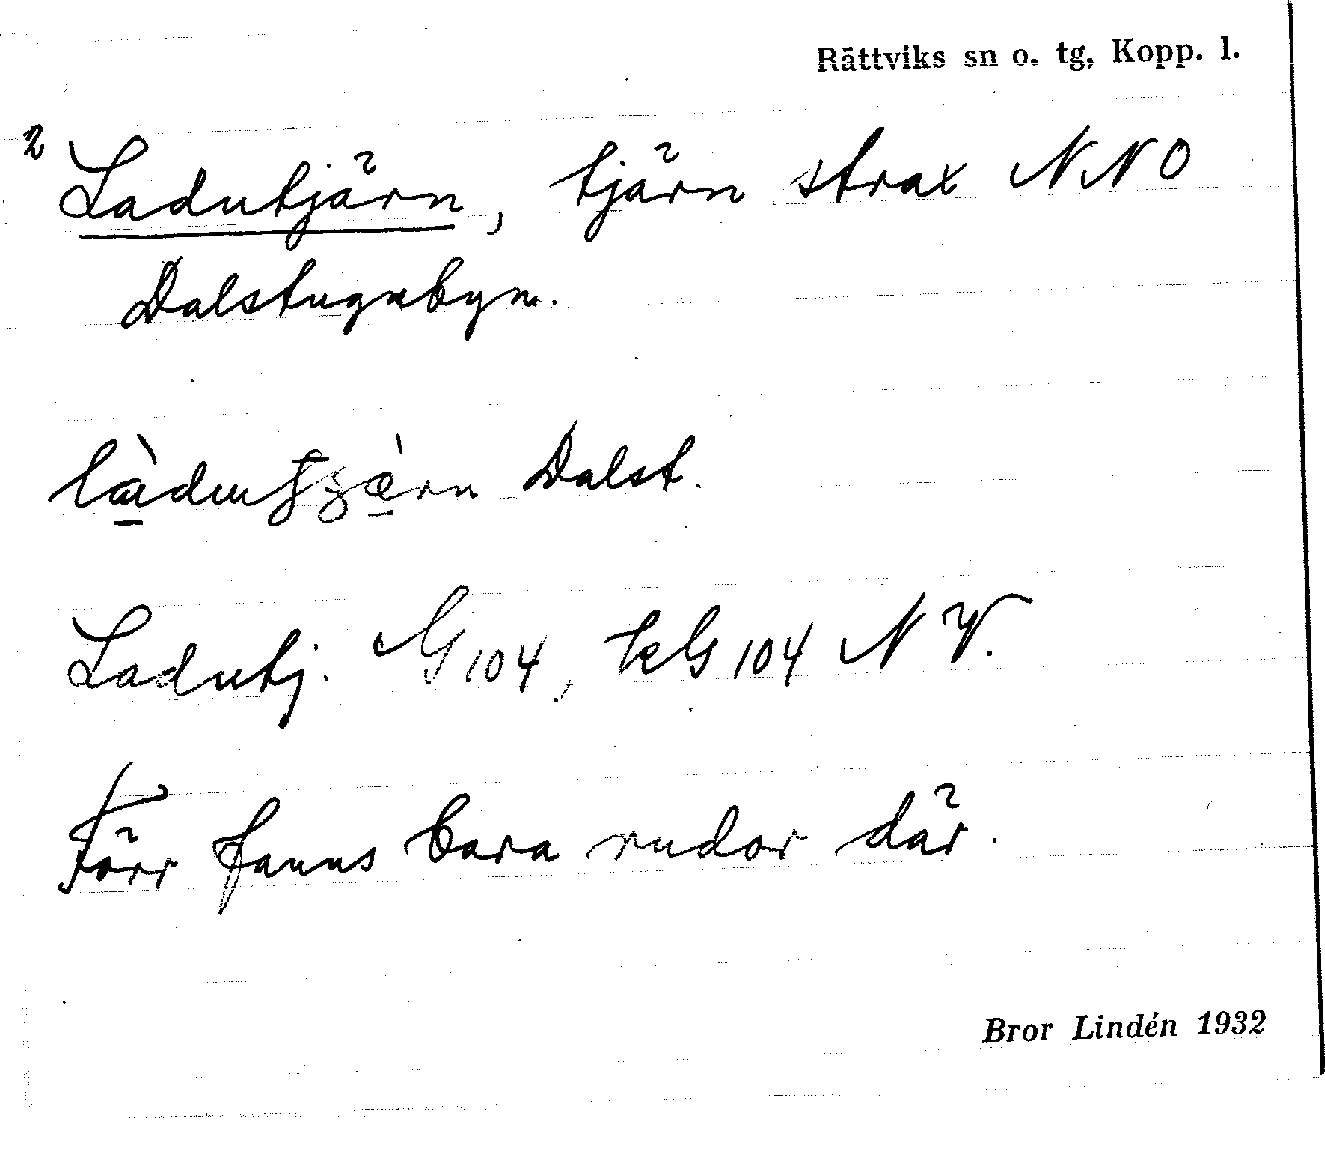 Rättviks sn o. tg, Kopp. l.
2 Ladutjärn, tjärn strax NNO
Dalstugubyn.
Dalst.
Ladutj. G 104, kG 104 NV.
Förr fanns bara rudor där.
Bror Lindén 1932